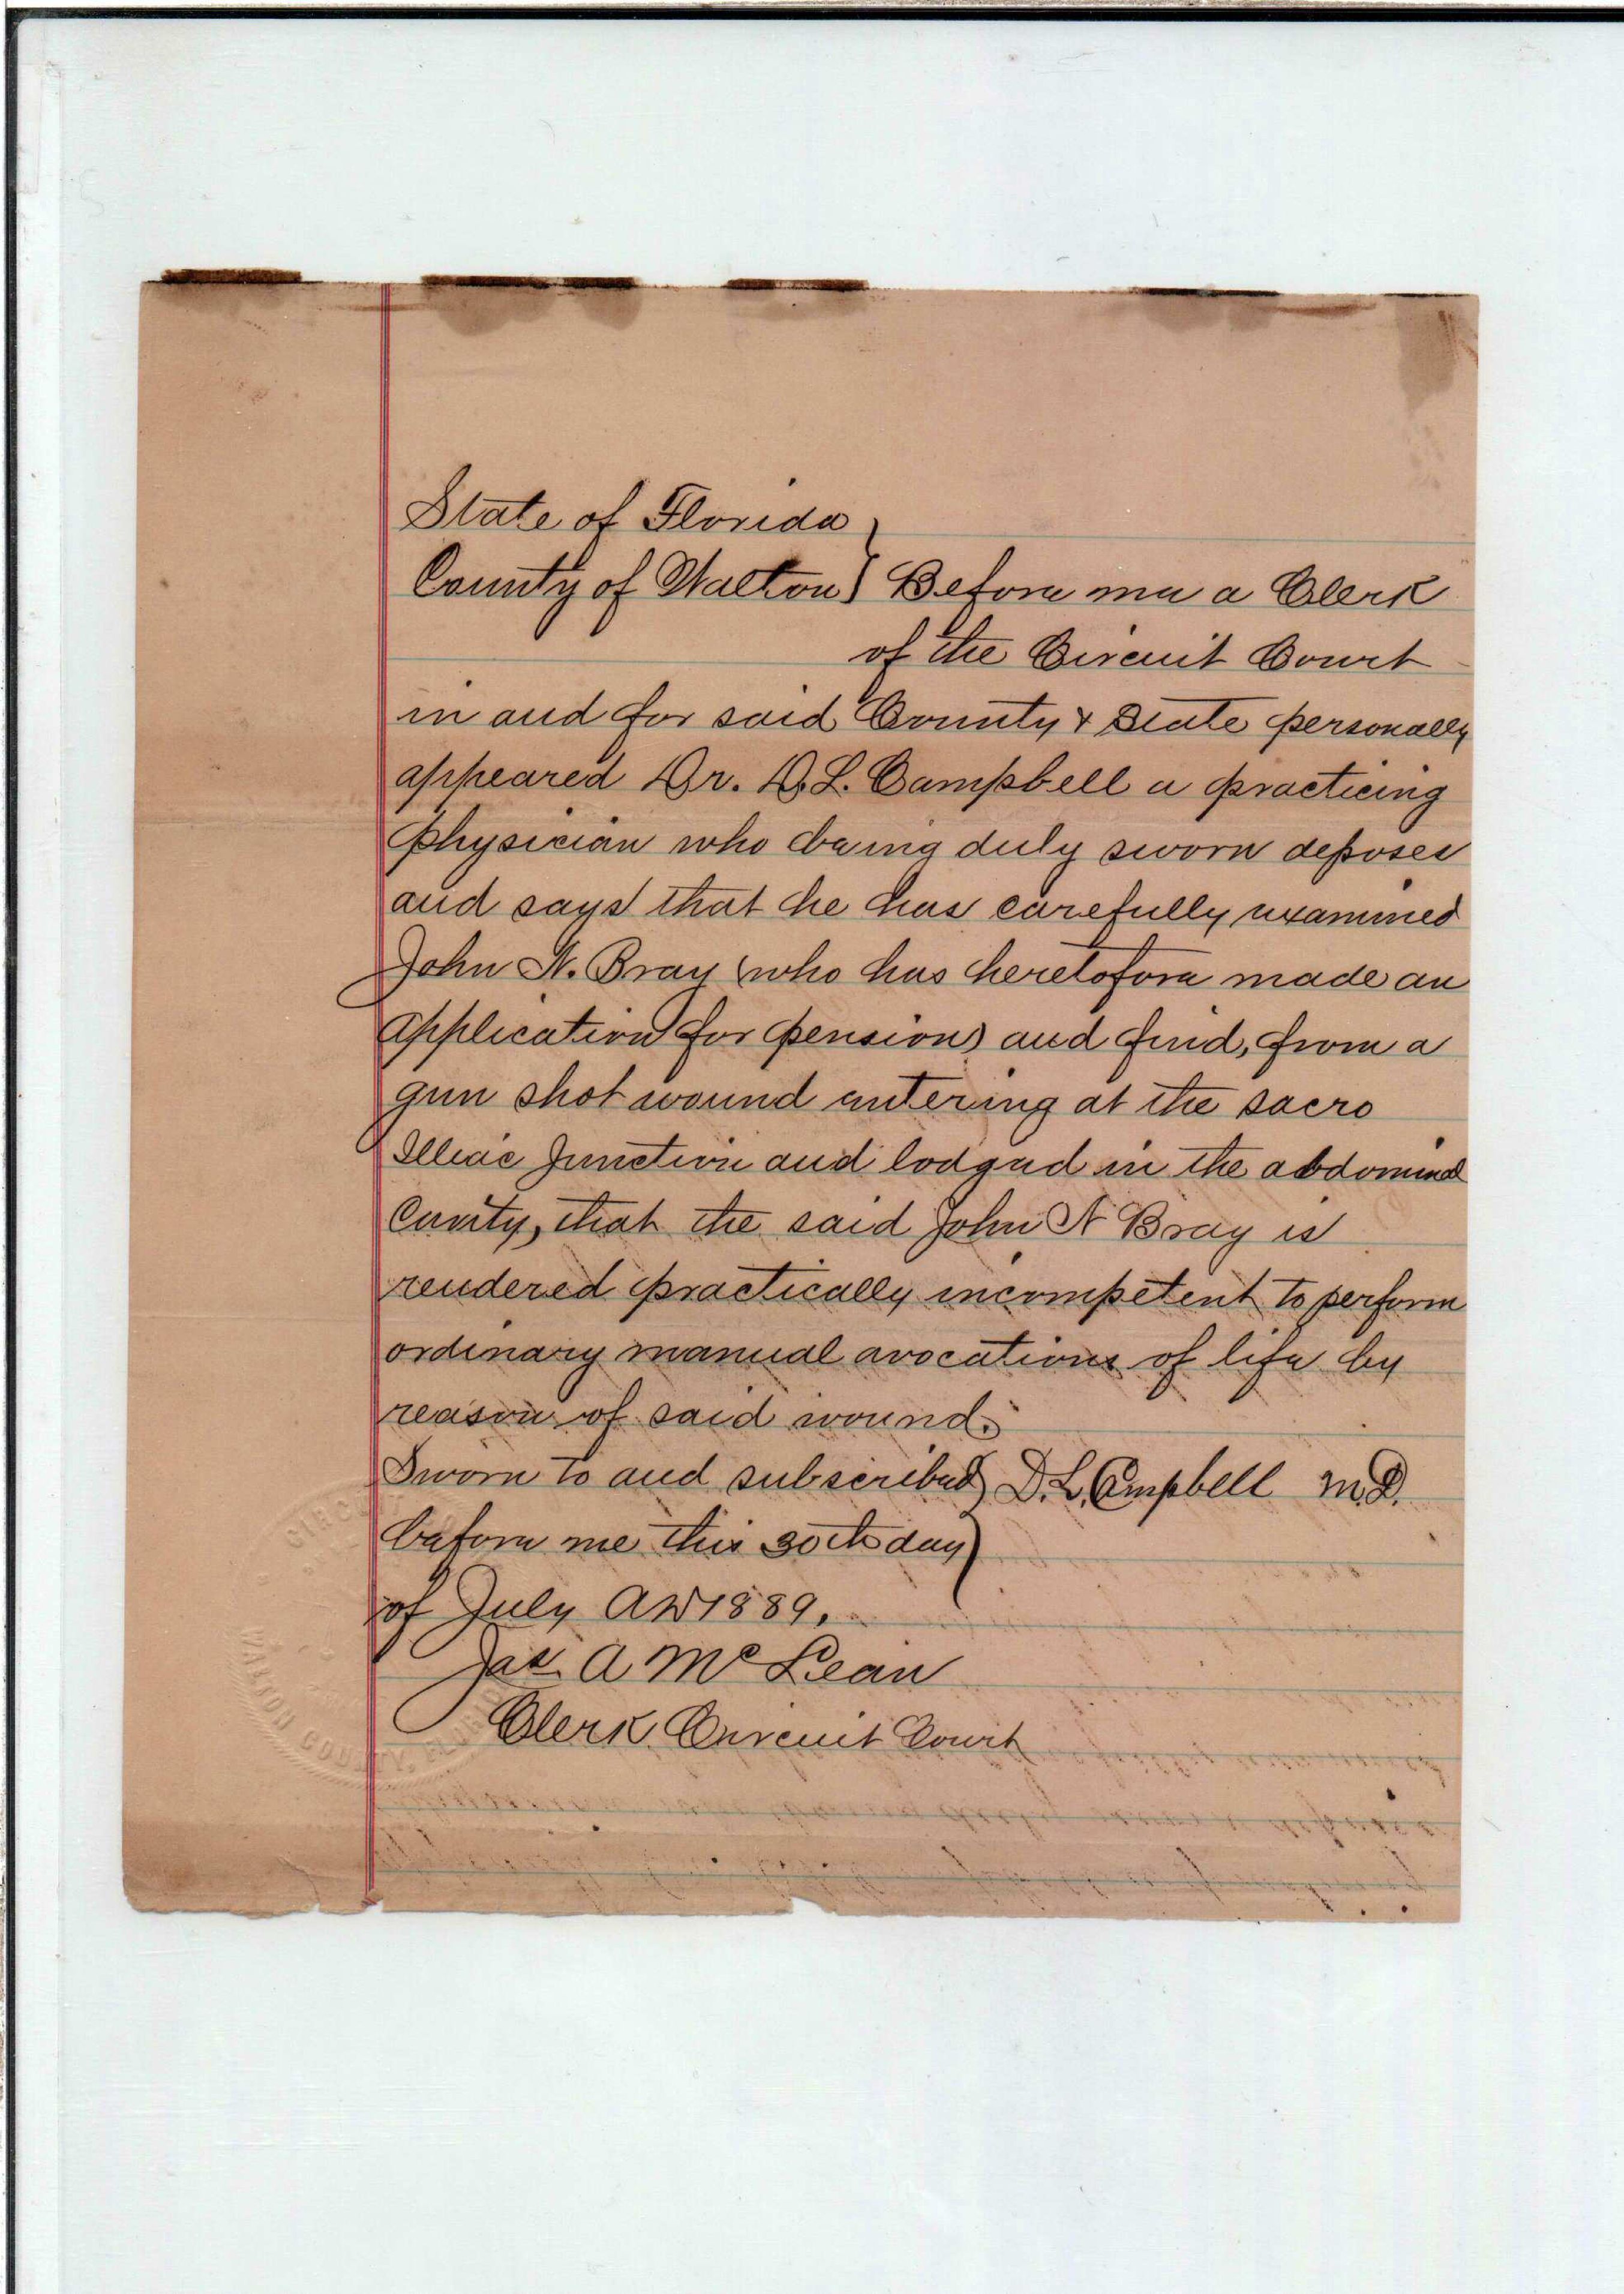 State of Florida }
County of Walton } Before me a Clerk
of the Circuit Court
in and for said County & State personally
appeared Dr. D. L. Campbell a practicing
physician who being duly sworn deposes
and says that he has carefully examined
John N. Bray (who has heretofore made an
application for pension) and find, from a
gun shot wound entering at the sacro
Illeac Junction and lodged in the abdominal
Cavity, that the said John N Bray is
rendered practically incompetent to perform
ordinary manual avocations of life by
reason of said wound.
Sworn to and subscribed } D. L. Campbell M.D.
before me this 30th day }
of July AD 1889.
Jas. A McLean
Clerk Circuit Court
CIRC
WALTON COUNTY, FLORIDA